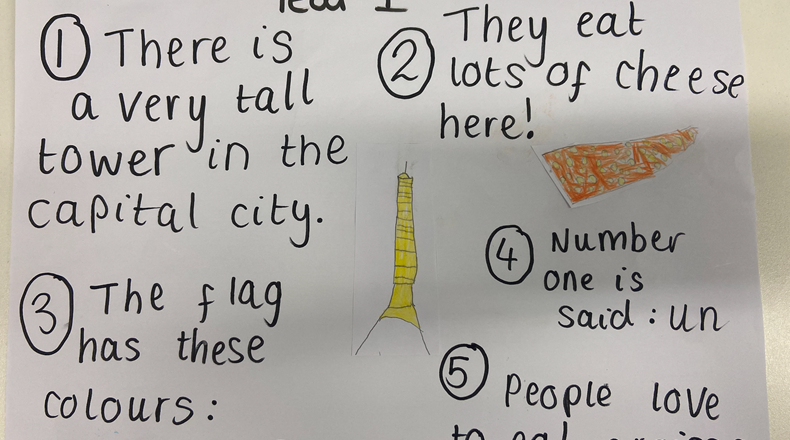 1 There is
a very tall
tower in the
capital city.
2 They eat
lots of cheese
here!
3 The flag
has these
colours:
4 Number
one is
said: un
5 People love
to eat